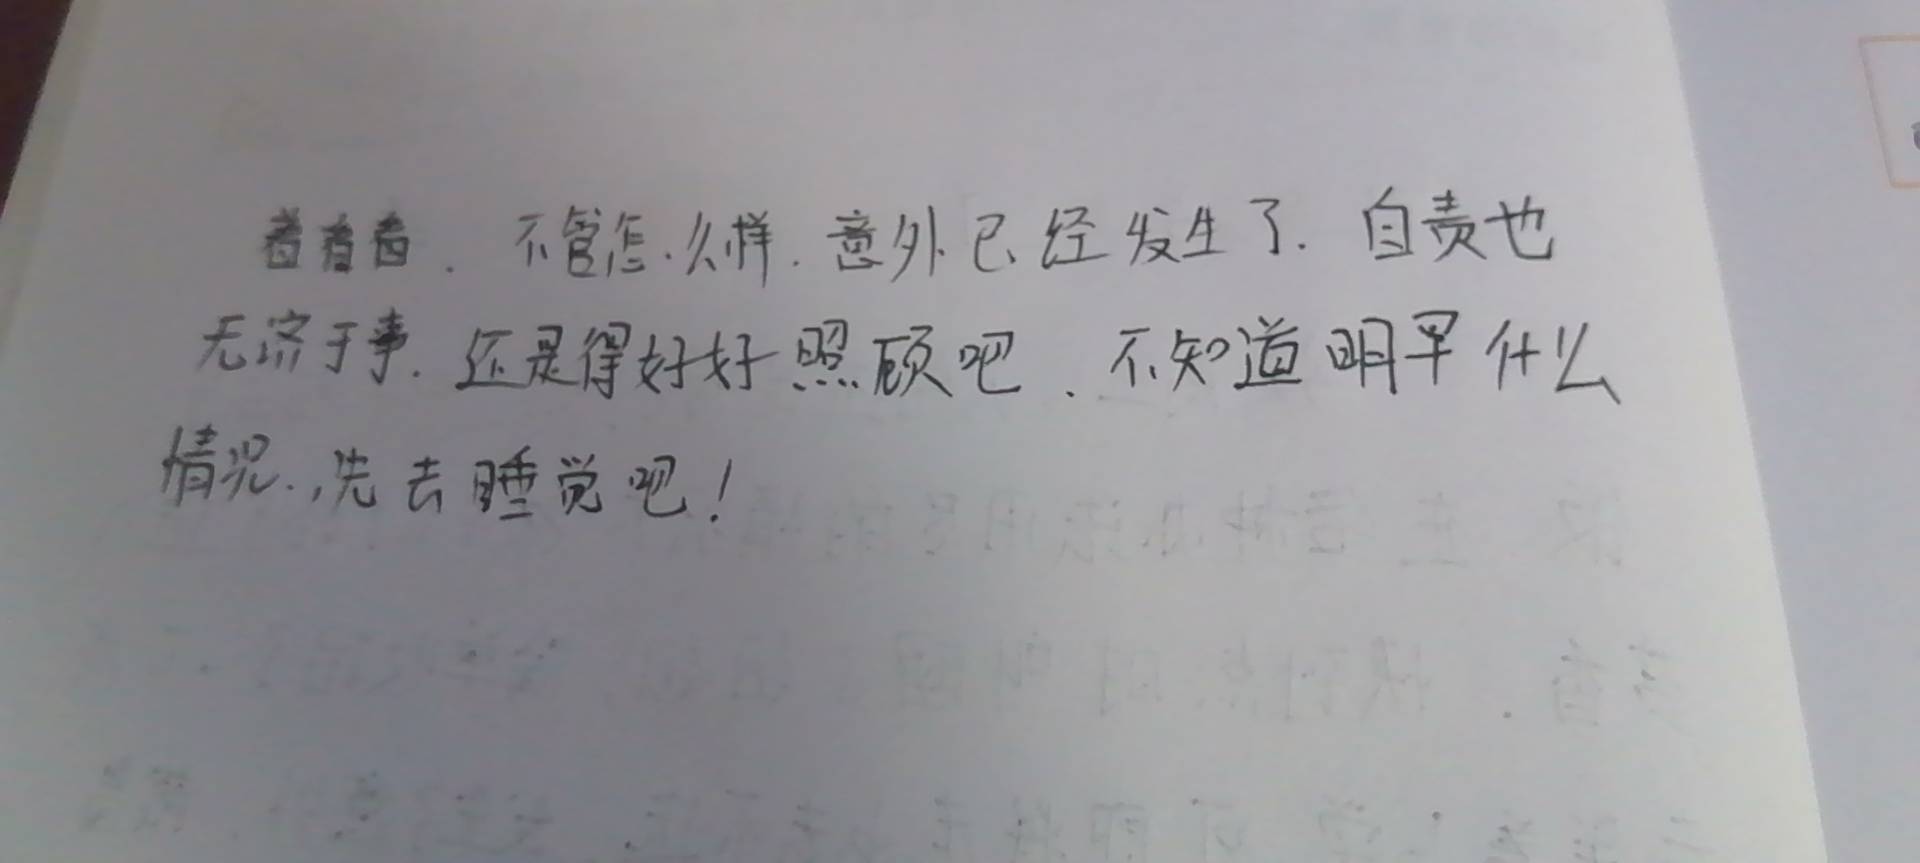 不管怎么样.意外已经发生了.自责也
无济于事.还是得好好照顾吧.不知道明早什么
情况.,先去睡觉吧!